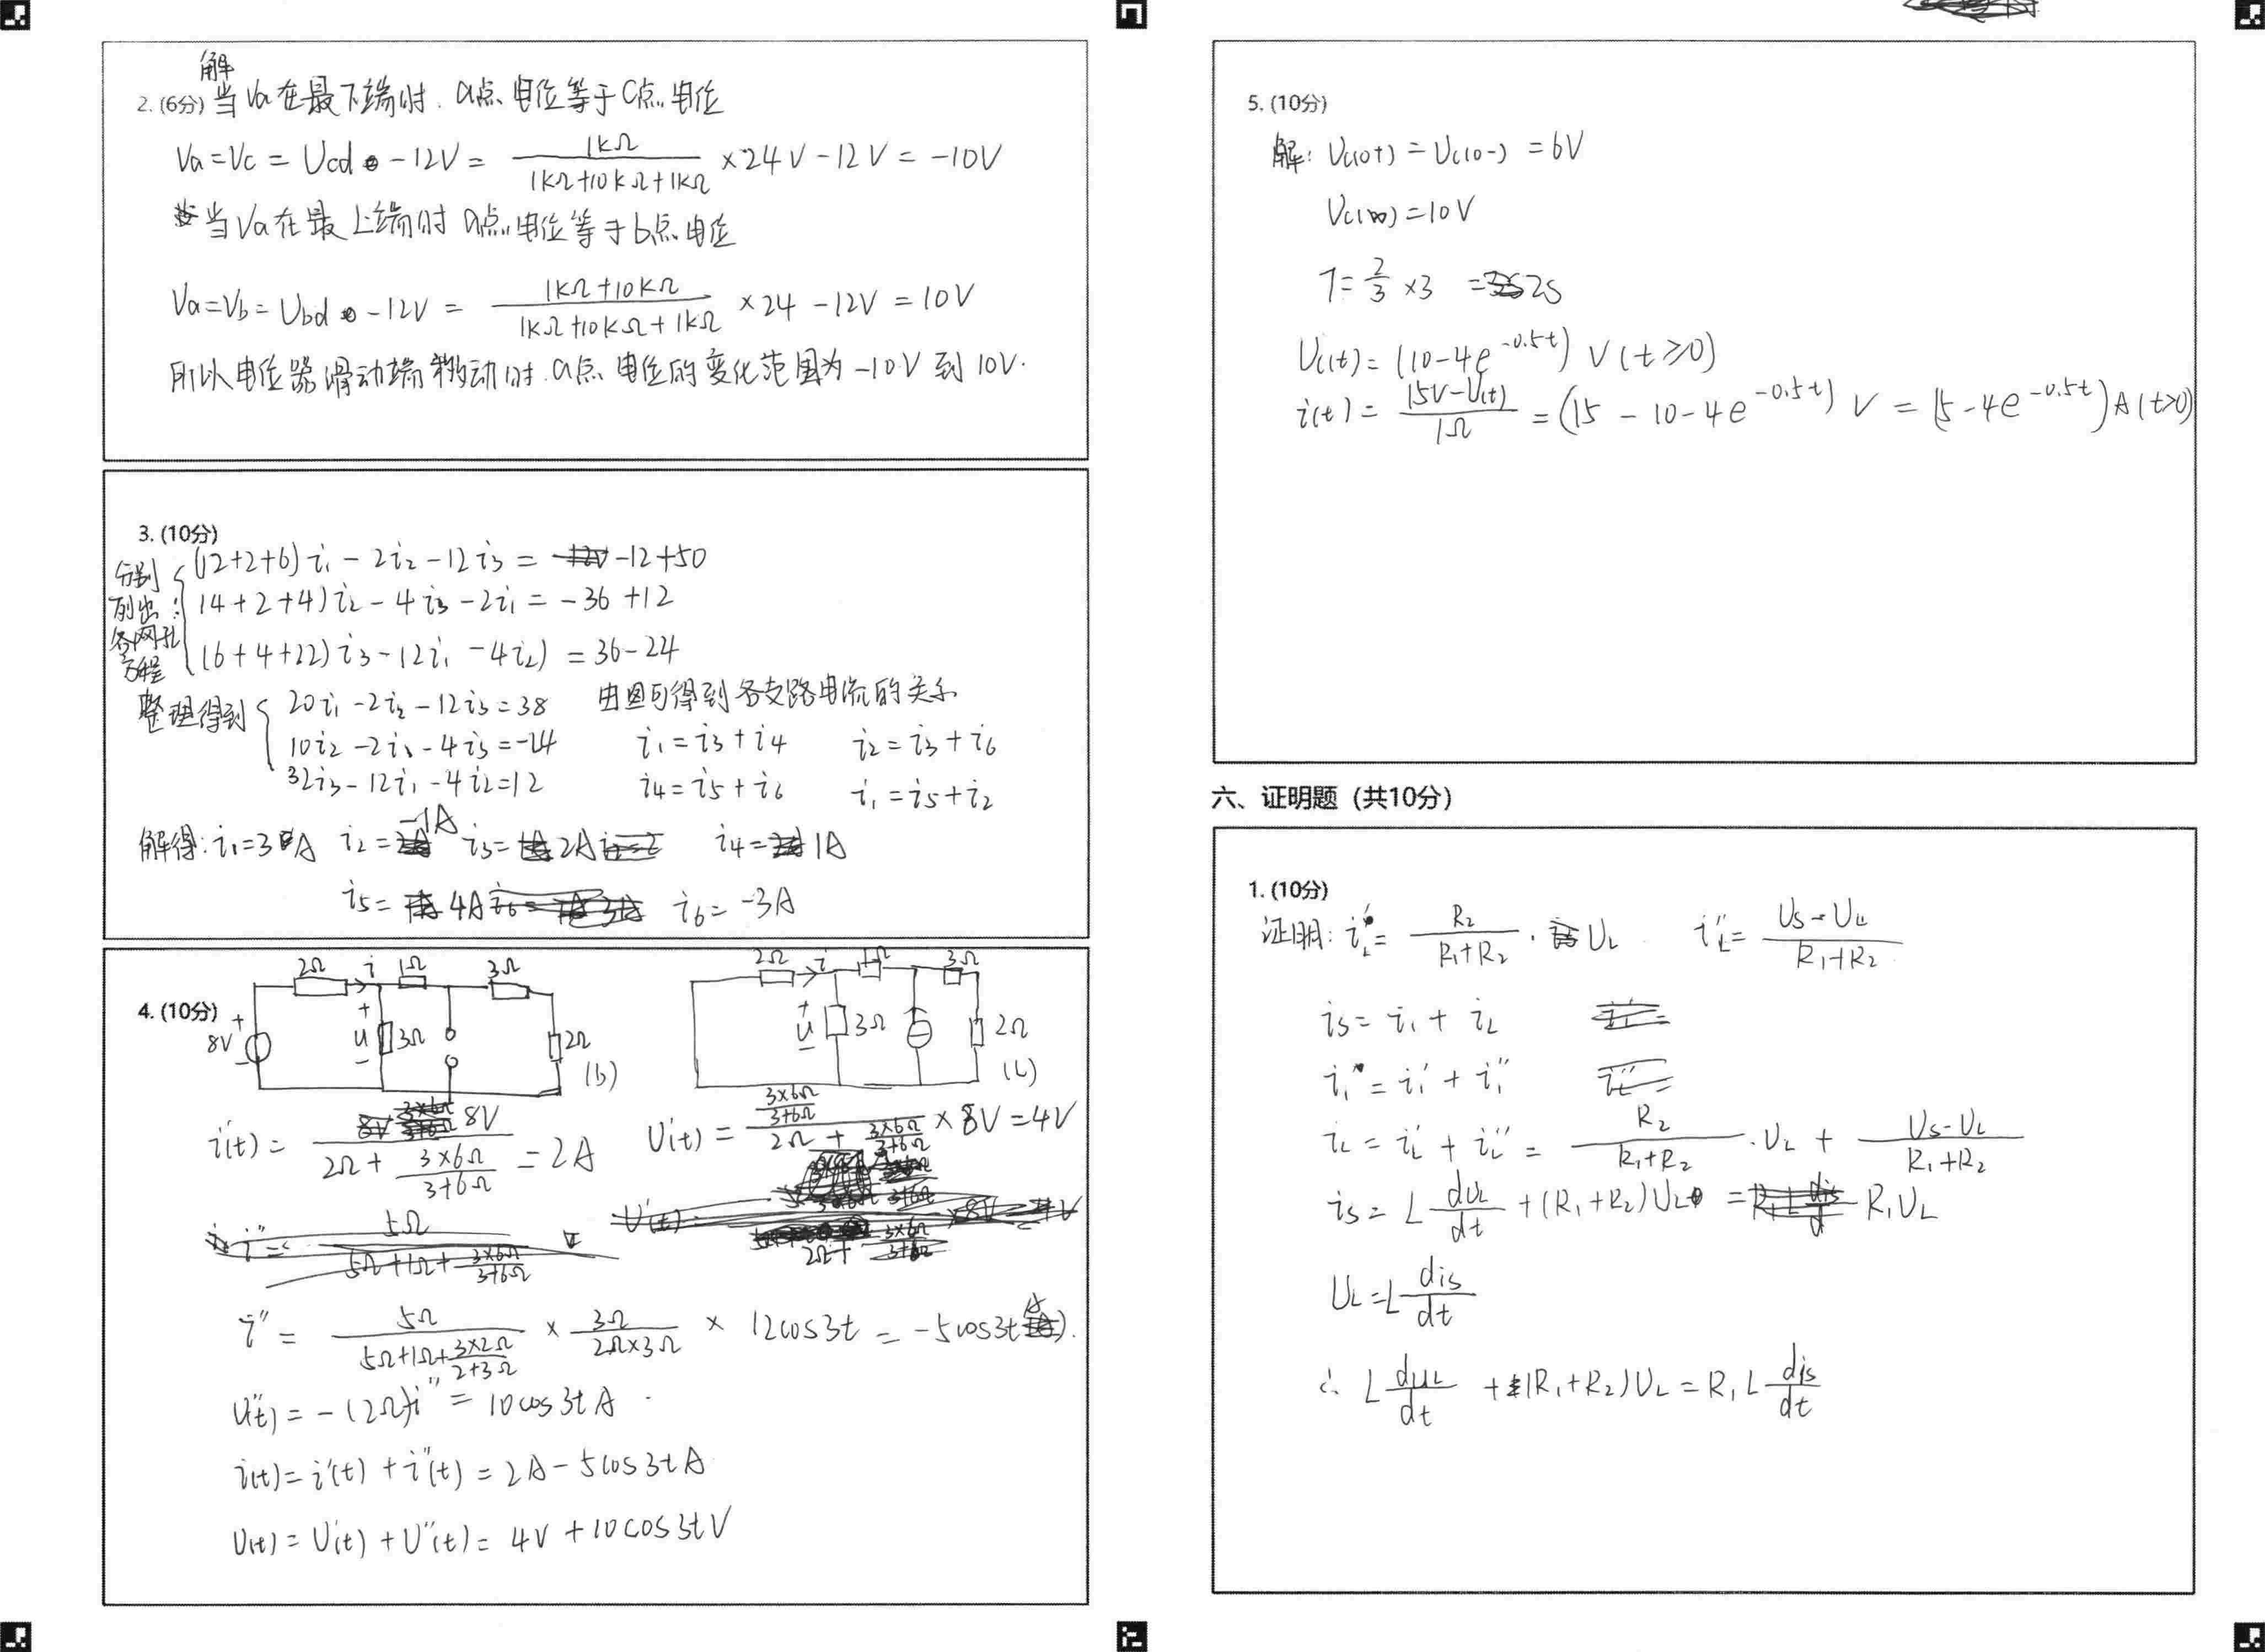 解
2. (6分) 当Va在最下端时. a点电位等于C点电位
Va=Vc = Ucd -12V = 1KΩ/(1KΩ+10KΩ+1KΩ) ×24V-12V = -10V
当Va在最上端时 a点电位等于b点电位
Va=Vb = Ubd -12V = (1KΩ+10KΩ)/(1KΩ+10KΩ+1KΩ) ×24 -12V = 10V
所以电位器滑动端移动时. a点电位的变化范围为 -10V 到 10V.
3. (10分)
分别列出: 各网孔方程
(12+2+6)i₁ - 2i₂ - 12i₃ = -12+50
(4+2+4)i₂ - 4i₃ - 2i₁ = -36+12
(6+4+22)i₃ - 12i₁ - 4i₂) = 36-24
整理得到
20i₁ - 2i₂ - 12i₃ = 38
10i₂ - 2i₁ - 4i₃ = -24
32i₃ - 12i₁ - 4i₂ = 12
由图可得到各支路电流的关系
i₁ = i₃ + i₄ i₂ = i₃ + i₆
i₄ = i₅ + i₆ i₁ = i₅ + i₂
解得: i₁=3A i₂= -1A i₃= 2A i₄= 1A
i₅= 4A i₆= -3A
4. (10分)
2Ω i 1Ω 3Ω
8V + - + u - 3Ω 2Ω
(b)
2Ω i 1Ω 3Ω
+ u - 3Ω 2Ω
(c)
i'(t) = 8V/(2Ω + (3×6Ω)/(3+6Ω)) = 2A
U'(t) = ((3×6Ω)/(3+6Ω))/(2Ω + (3×6Ω)/(3+6Ω)) ×8V = 4V
i'' = 5Ω/(5Ω+1Ω+(3×2Ω)/(2+3Ω)) × 3Ω/(2Ω×3Ω) × 12cos3t = -5cos3t A).
U''(t) = -(2Ω)i'' = 10cos3t A.
i(t) = i'(t) + i''(t) = 2A - 5cos3tA
U(t) = U'(t) + U''(t) = 4V + 10cos3tV
5. (10分)
解: Uc(0+) = Uc(0-) = 6V
Uc(∞) = 10V
T = 2/3 ×3 = 2S
Uc(t) = (10-4e^-0.5t) V (t≥0)
i(t) = (15V-U(t))/1Ω = (15 - 10 - 4e^-0.5t) V = (5-4e^-0.5t)A (t>0)
六、证明题（共10分）
1. (10分)
证明: i_L' = R₂/(R₁+R₂) · U_L i_L'' = (Us-U_L)/(R₁+R₂)
is = i₁ + i_L
i₁ = i₁' + i₁''
i_L = i_L' + i_L'' = R₂/(R₁+R₂) · U_L + (Us-U_L)/(R₁+R₂)
is = L dU_L/dt + (R₁+R₂)U_L = R₁U_L
U_L = L dis/dt
∴ L dU_L/dt + (R₁+R₂)U_L = R₁L dis/dt